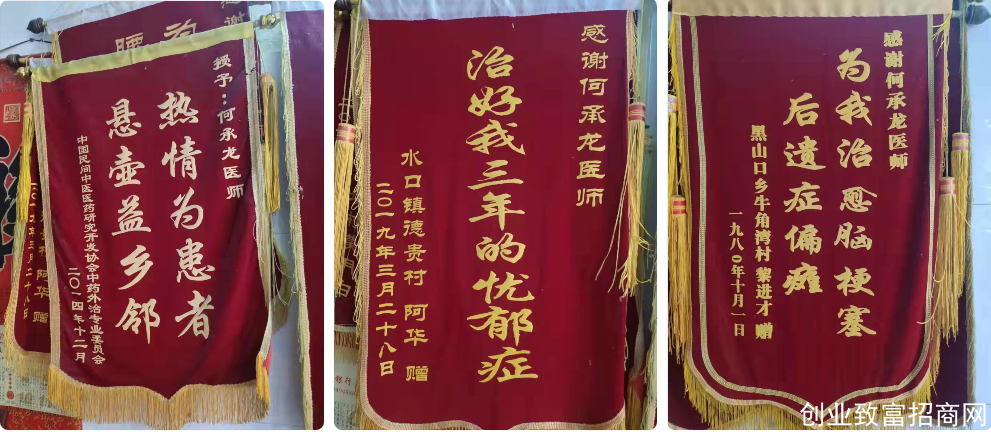 授予：何承龙医师
热情为患者
悬壶益乡邻
中国民间中医医药研究开发协会中药外治专业委员会
二〇一四年十二月
阿华 赠
二〇一九年三月二十八
感谢何承龙医师
治好我三年的忧郁症
水口镇德贵村 阿华 赠
二〇一九年三月二十八日
感谢何承龙医师
为我治愈脑梗塞
后遗症偏瘫
黑山口乡牛角湾村 黎进才 赠
一九八〇年十月一日
创业致富招商网